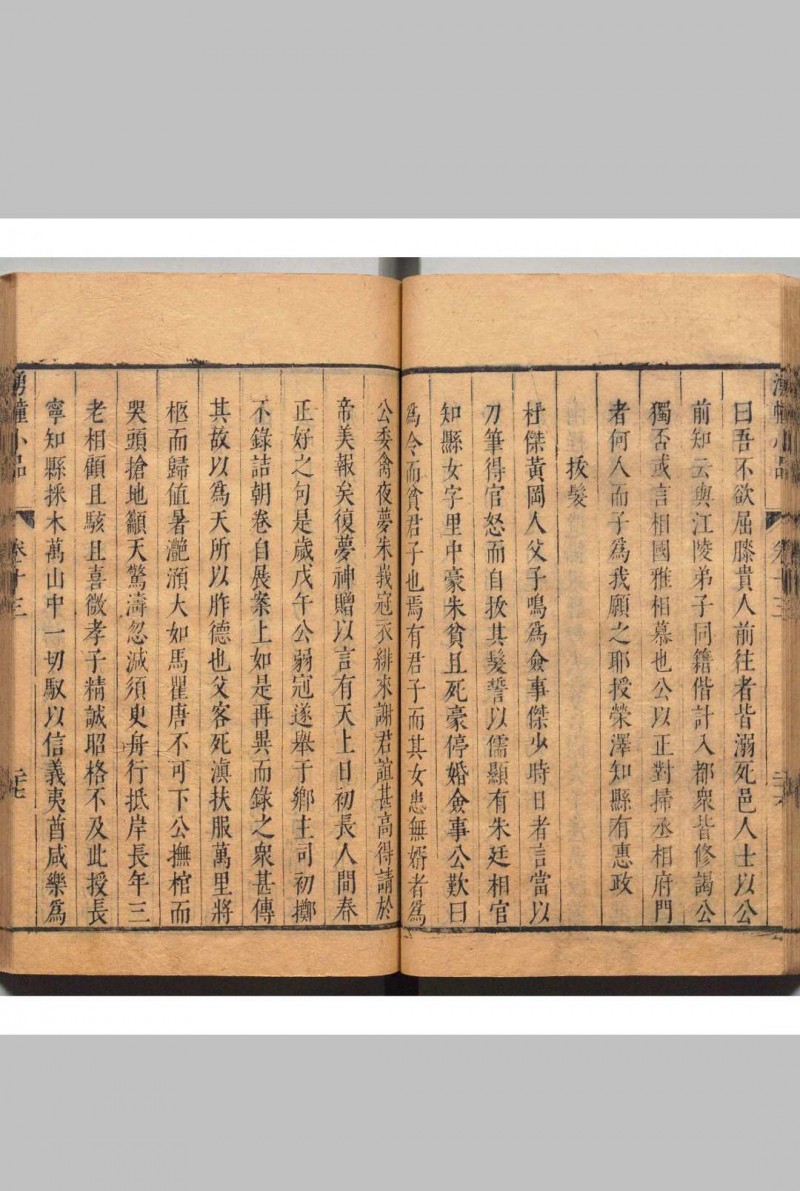 曰吾不欲屈膝貴人前往者皆溺死邑人士以公
前知云與江陵弟子同籍偕計入都衆皆修謁公
獨否或言相國雅相慕也公以正對掃丞相府門
者何人而子爲我願之耶授榮澤知縣有惠政
拔髮
杜傑黃岡人父子鳴爲僉事傑少時日者言當以
刀筆得官怒而自拔其髮誓以儒顯有朱廷相官
知縣女字里中豪朱貧且死豪停婚僉事公歎曰
爲令而貧君子也焉有君子而其女患無婿者爲
公委禽夜夢朱峩冠衣緋來謝君誼甚高得請於
帝美報矣復夢神贈以言有天上日初長人間春
正好之句是歲戊午公弱冠遂舉于鄉主司初擲
不錄詰朝卷自展案上如是再異而錄之衆甚傳
其故以爲天所以胙德也父客死滇扶服萬里將
柩而歸値暑灔澦大如馬瞿唐不可下公撫棺而
哭頭搶地籲天驚濤忽減須臾舟行抵岸長年三
老相顧且駭且喜微孝子精誠昭格不及此授長
寧知縣採木萬山中一切馭以信義夷酋咸樂爲
湧幢小品
卷十三
二十七